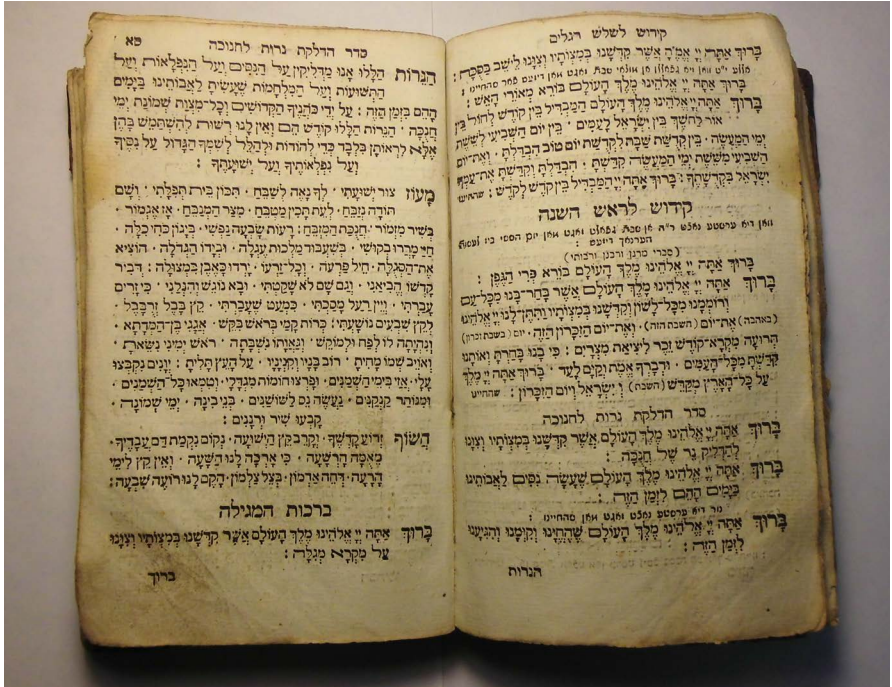 קידוש לשלש רגלים
בָּרוּךְ אַתָּה יְיָ אֱמֶ"הָ אֲשֶׁר קִדְּשָׁנוּ בְּמִצְוֹתָיו וְצִוָּנוּ לֵישֵׁב בַּסֻּכָּה :
בָּרוּךְ אַתָּה יְיָ אֱלֹהֵינוּ מֶלֶךְ הָעוֹלָם בּוֹרֵא מְאוֹרֵי הָאֵשׁ :
בָּרוּךְ אַתָּה יְיָ אֱלֹהֵינוּ מֶלֶךְ הָעוֹלָם הַמַּבְדִּיל בֵּין קוֹדֶשׁ לְחוֹל בֵּין
אוֹר לְחֹשֶׁךְ בֵּין יִשְׂרָאֵל לָעַמִּים · בֵּין יוֹם הַשְּׁבִיעִי לְשֵׁשֶׁת
יְמֵי הַמַּעֲשֶׂה · בֵּין קְדֻשַּׁת שַׁבָּת לִקְדֻשַּׁת יוֹם טוֹב הִבְדַּלְתָּ · וְאֶת־יוֹם
הַשְּׁבִיעִי מִשֵּׁשֶׁת יְמֵי הַמַּעֲשֶׂה קִדַּשְׁתָּ · הִבְדַּלְתָּ וְקִדַּשְׁתָּ אֶת־עַמְּךָ
יִשְׂרָאֵל בִּקְדֻשָּׁתֶךָ : בָּרוּךְ אַתָּה יְיָ הַמַּבְדִּיל בֵּין קֹדֶשׁ לְקֹדֶשׁ : שהחיינו
קידוש לראש השנה
(סברי מרנן ורבנן ורבותי)
בָּרוּךְ אַתָּה יְיָ אֱלֹהֵינוּ מֶלֶךְ הָעוֹלָם בּוֹרֵא פְּרִי הַגָּפֶן :
בָּרוּךְ אַתָּה יְיָ אֱלֹהֵינוּ מֶלֶךְ הָעוֹלָם אֲשֶׁר בָּחַר־בָּנוּ מִכָּל־עַם
וְרוֹמְמָנוּ מִכָּל־לָשׁוֹן וְקִדְּשָׁנוּ בְּמִצְוֹתָיו וַתִּתֶּן־לָנוּ יְיָ אֱלֹהֵינוּ
(באהבה) אֶת־יוֹם (השבת הזה) · וְאֶת־יוֹם הַזִּכָּרוֹן הַזֶּה · יום (בשבת זכרון)
תְּרוּעָה מִקְרָא־קוֹדֶשׁ זֵכֶר לִיצִיאַת מִצְרָיִם : כִּי בָנוּ בָחַרְתָּ וְאוֹתָנוּ
קִדַּשְׁתָּ מִכָּל־הָעַמִּים · וּדְבָרְךָ אֱמֶת וְקַיָּם לָעַד · בָּרוּךְ אַתָּה יְיָ מֶלֶךְ
עַל כָּל־הָאָרֶץ מְקַדֵּשׁ (השבת) וְ יִשְׂרָאֵל וְיוֹם הַזִּכָּרוֹן : שהחיינו
סדר הדלקת נרות לחנוכה
בָּרוּךְ אַתָּה יְיָ אֱלֹהֵינוּ מֶלֶךְ הָעוֹלָם אֲשֶׁר קִדְּשָׁנוּ בְּמִצְוֹתָיו וְצִוָּנוּ
לְהַדְלִיק נֵר שֶׁל חֲנֻכָּה :
בָּרוּךְ אַתָּה יְיָ אֱלֹהֵינוּ מֶלֶךְ הָעוֹלָם שֶׁעָשָׂה נִסִּים לַאֲבוֹתֵינוּ
בַּיָּמִים הָהֵם לַזְּמַן הַזֶּה :
נור דיא ערסטע נאכט זאגט מאן שהחיינו :
בָּרוּךְ אַתָּה יְיָ אֱלֹהֵינוּ מֶלֶךְ הָעוֹלָם שֶׁהֶחֱיָנוּ וְקִיְּמָנוּ וְהִגִּיעָנוּ
לַזְּמַן הַזֶּה :
הנרות
סדר הדלקת נרות לחנוכה
הַנֵּרוֹת הַלָּלוּ אָנוּ מַדְלִיקִין עַל הַנִּסִּים וְעַל הַנִּפְלָאוֹת וְעַל
הַתְּשׁוּעוֹת וְעַל הַמִּלְחָמוֹת שֶׁעָשִׂיתָ לַאֲבוֹתֵינוּ בַּיָּמִים
הָהֵם בַּזְּמַן הַזֶּה : עַל יְדֵי כֹּהֲנֶיךָ הַקְּדוֹשִׁים וְכָל־מִצְוַת שְׁמוֹנַת יְמֵי
חֲנֻכָּה · הַנֵּרוֹת הַלָּלוּ קוֹדֶשׁ הֵם וְאֵין לָנוּ רְשׁוּת לְהִשְׁתַּמֵּשׁ בָּהֶן
אֶלָּא לִרְאוֹתָן בִּלְבָד כְּדֵי לְהוֹדוֹת וּלְהַלֵּל לְשִׁמְךָ הַגָּדוֹל עַל נִסֶּיךָ
וְעַל נִפְלְאוֹתֶיךָ וְעַל יְשׁוּעָתֶךָ :
מָעוֹז צוּר יְשׁוּעָתִי · לְךָ נָאֶה לְשַׁבֵּחַ · תִּכּוֹן בֵּית תְּפִלָּתִי · וְשָׁם
תּוֹדָה נְזַבֵּחַ · לְעֵת תָּכִין מַטְבֵּחַ · מִצַּר הַמְנַבֵּחַ · אָז אֶגְמוֹר ·
בְּשִׁיר מִזְמוֹר · חֲנֻכַּת הַמִּזְבֵּחַ : רָעוֹת שָׂבְעָה נַפְשִׁי · בְּיָגוֹן כֹּחִי כָּלָה ·
חַיַּי מָרְרוּ בְקוּשִׁי · בְּשִׁעְבּוּד מַלְכוּת עֶגְלָה · וּבְיָדוֹ הַגְּדֹלָה · הוֹצִיא
אֶת־הַסְּגֻלָּה · חֵיל פַּרְעֹה · וְכָל־זַרְעוֹ · יָרְדוּ כְאֶבֶן בִּמְצוּלָה : דְּבִיר
קָדְשׁוֹ הֱבִיאַנִי · וְגַם שָׁם לֹא שָׁקַטְתִּי · וּבָא נוֹגֵשׂ וְהִגְלַנִי · כִּי זָרִים
עָבַדְתִּי · וְיֵין רַעַל מָסַכְתִּי · כִּמְעַט שֶׁעָבַרְתִּי · קֵץ בָּבֶל זְרֻבָּבֶל ·
לְקֵץ שִׁבְעִים נוֹשַׁעְתִּי : כְּרוֹת קָמַי בְּרֹאשׁ בִּקֵּשׁ · אֲגָגִי בֶּן־הַמְּדָתָא ·
וְנִהְיָתָה לוֹ לְפַח וּלְמוֹקֵשׁ · וְגַאֲוָתוֹ נִשְׁבָּתָה · רֹאשׁ יְמִינִי נִשֵּׂאתָ ·
וְאוֹיֵב שְׁמוֹ מָחִיתָ · רוֹב בָּנָיו וְקִנְיָנָיו · עַל הָעֵץ תָּלִיתָ : יְוָנִים נִקְבְּצוּ
עָלַי · אֲזַי בִּימֵי חַשְׁמַנִּים · וּפָרְצוּ חוֹמוֹת מִגְדָּלַי · וְטִמְּאוּ כָּל־הַשְּׁמָנִים ·
וּמִנּוֹתַר קַנְקַנִּים · נַעֲשָׂה נֵס לַשּׁוֹשַׁנִּים · בְּנֵי בִינָה · יְמֵי שְׁמוֹנָה ·
קָבְעוּ שִׁיר וּרְנָנִים :
חֲשׂוֹף זְרוֹעַ קָדְשֶׁךָ · וְקָרֵב קֵץ הַיְשׁוּעָה · נְקוֹם נִקְמַת דַּם עֲבָדֶיךָ ·
מֵאֻמָּה הָרְשָׁעָה · כִּי אָרְכָה לָנוּ הַשָּׁעָה · וְאֵין קֵץ לִימֵי
הָרָעָה · דְּחֵה אַדְמוֹן · בְּצֵל צַלְמוֹן · הָקֵם לָנוּ רוֹעֶה שִׁבְעָה :
ברכות המגילה
בָּרוּךְ אַתָּה יְיָ אֱלֹהֵינוּ מֶלֶךְ הָעוֹלָם אֲשֶׁר קִדְּשָׁנוּ בְּמִצְוֹתָיו וְצִוָּנוּ
עַל מִקְרָא מְגִלָּה :
ברוך